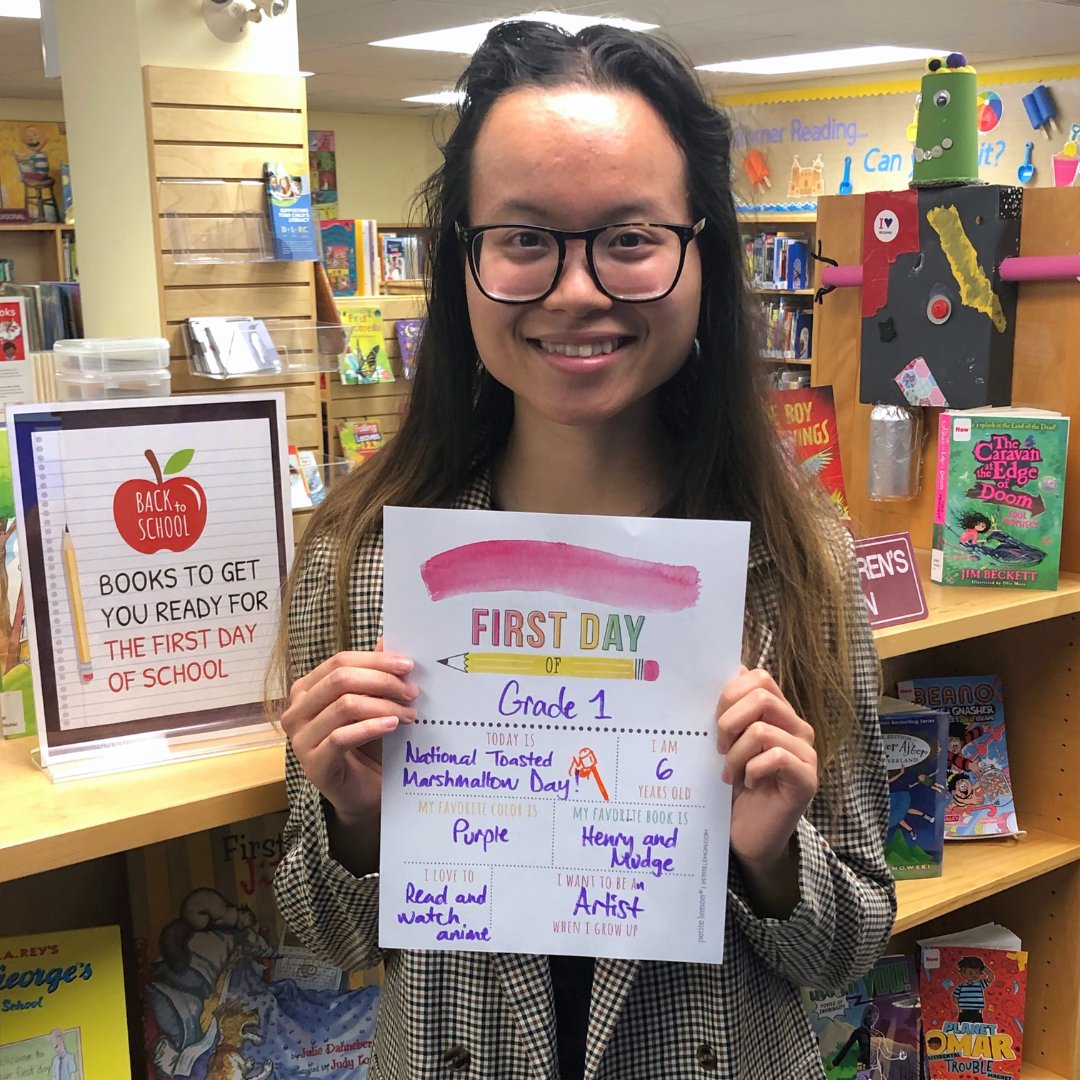 Summer Reading...
Can
it?
SUPPORTING YOUR CHILD'S
LITERACY
D·L·R·C
BACK
to
SCHOOL
BOOKS TO GET
YOU READY FOR
THE FIRST DAY
OF SCHOOL
FIRST DAY
OF
Grade 1
TODAY IS
National Toasted
Marshmallow Day!
I AM
6
YEARS OLD
MY FAVORITE COLOR IS
Purple
MY FAVORITE BOOK IS
Henry and
Mudge
I LOVE TO
Read and
watch
anime
I WANT TO BE An
Artist
WHEN I GROW UP
petite lemon® | PETITELEMON.COM
I ♥
BOY
WINGS
New
The
Caravan
at the Edge
of
Doom
FOUL
PROPHECY
JIM BECKETT
REN'S
N
BEANO
GNASHER
Falling
Leaves
First
A.REY'S
George's
School
Welcome to
Julie Danneberg
Judy Lo
YOU!
New
PLANET
OMAR
ACCIDENTAL
TROUBLE
MAGNET